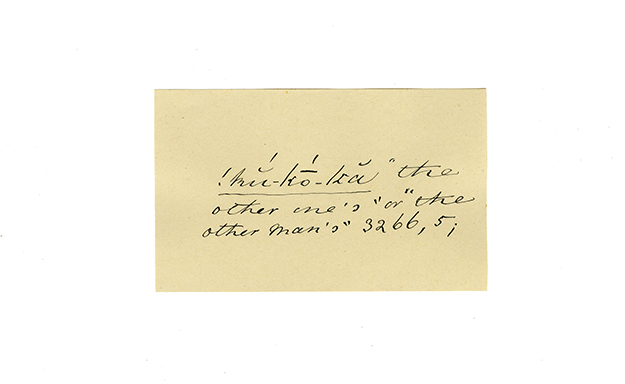 !kŭ́-kṓ-kă "the
other one's "or" the
other man's" 3266, 5;